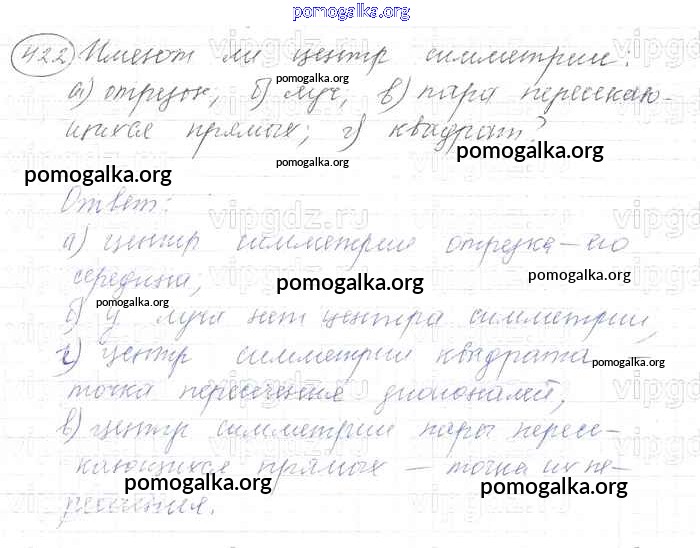 pomogalka.org
422 Имеют ли центр симметрии:
pomogalka.org
а) отрезок; б) луч; в) пара пересекаю-
щихся прямых; г) квадрат?
pomogalka.org
pomogalka.org
pomogalka.org
Ответ:
vipgdz.ru
а) центр симметрии отрезка – его
середина;
pomogalka.org
pomogalka.org
pomogalka.org
б) у луча нет центра симметрии,
г) центр симметрии квадрата
pomogalka.org
точка пересечения диагоналей,
vipgdz.ru
в) центр симметрии пары пересе-
кающихся прямых – точка их пе-
pomogalka.org
pomogalka.org
ресечения.